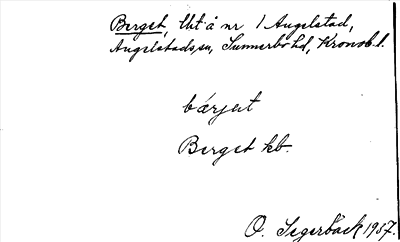 Berget, lht å nr 1 Angelstad,
Angelstads sn, Sunnerbo hd, Kronob. l.
bærjet
Berget kb.
O. Segerbäck 1957.